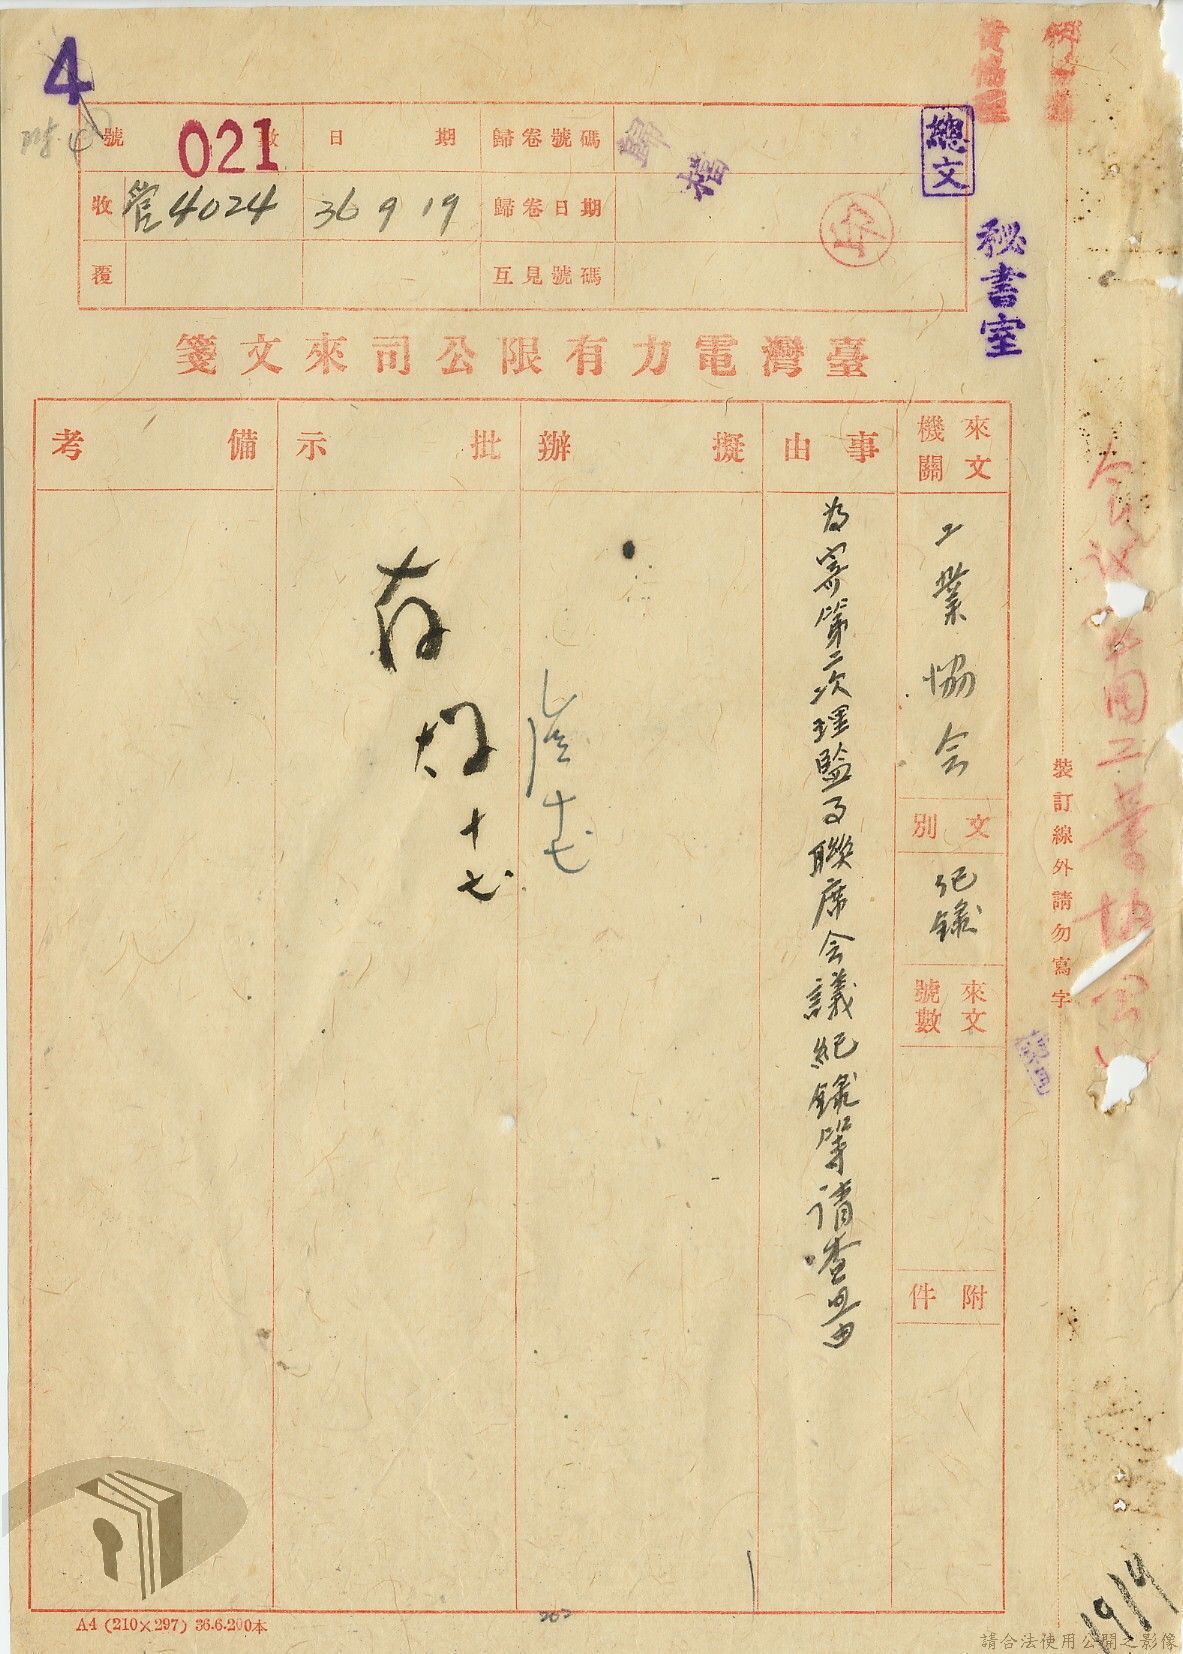 4
附4
021
號數
日期
歸卷號碼
收
管4024
36 9 19
歸卷日期
覆
互見號碼
歸檔
總文
秘書室
臺灣電力有限公司來文箋
來文機關
工業協会
文別
紀錄
來文號數
附件
事由
為寄第二次理監事聯席会議紀錄等請查照由
擬辦
十七
批示
存
十七
備考
裝訂線外請勿寫字
19/9
A4 (210×297) 36.6.200本
請合法使用公開之影像